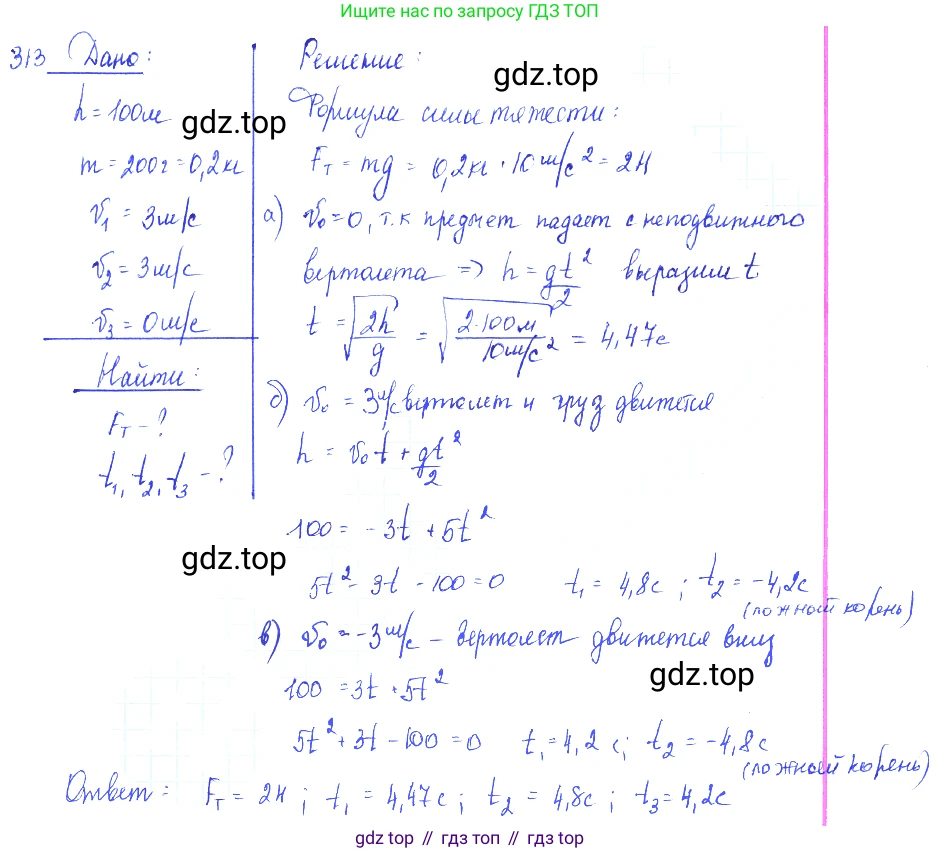 Ищите нас по запросу ГДЗ ТОП
313 Дано:
h = 100м
m = 200г = 0,2кг
v₁ = 3м/с
v₂ = 3м/с
v₃ = 0м/с
Найти:
Fт - ?
t₁, t₂, t₃ - ?
Решение:
gdz.top
gdz.top
Формула силы тяжести:
Fт = mg = 0,2кг · 10 м/с² = 2Н
а) v₀ = 0, т.к предмет падает с неподвижного
вертолета => h = gt²/2 выразим t
t = √(2h/g) = √(2·100м/10м/с²) = 4,47с
б) v₀ = 3м/с вертолет и груз движется
h = v₀t + gt²/2
100 = -3t + 5t²
gdz.top
5t² - 3t - 100 = 0 t₁ = 4,8с ; t₂ = -4,2с
(ложный корень)
в) v₀ = -3м/с - вертолет движется вниз
gdz.top
100 = 3t + 5t²
5t² + 3t - 100 = 0 t₁ = 4,2 с; t₂ = -4,8с
(ложный корень)
Ответ: Fт = 2Н ; t₁ = 4,47с ; t₂ = 4,8с ; t₃ = 4,2с
gdz top // гдз топ // гдз top